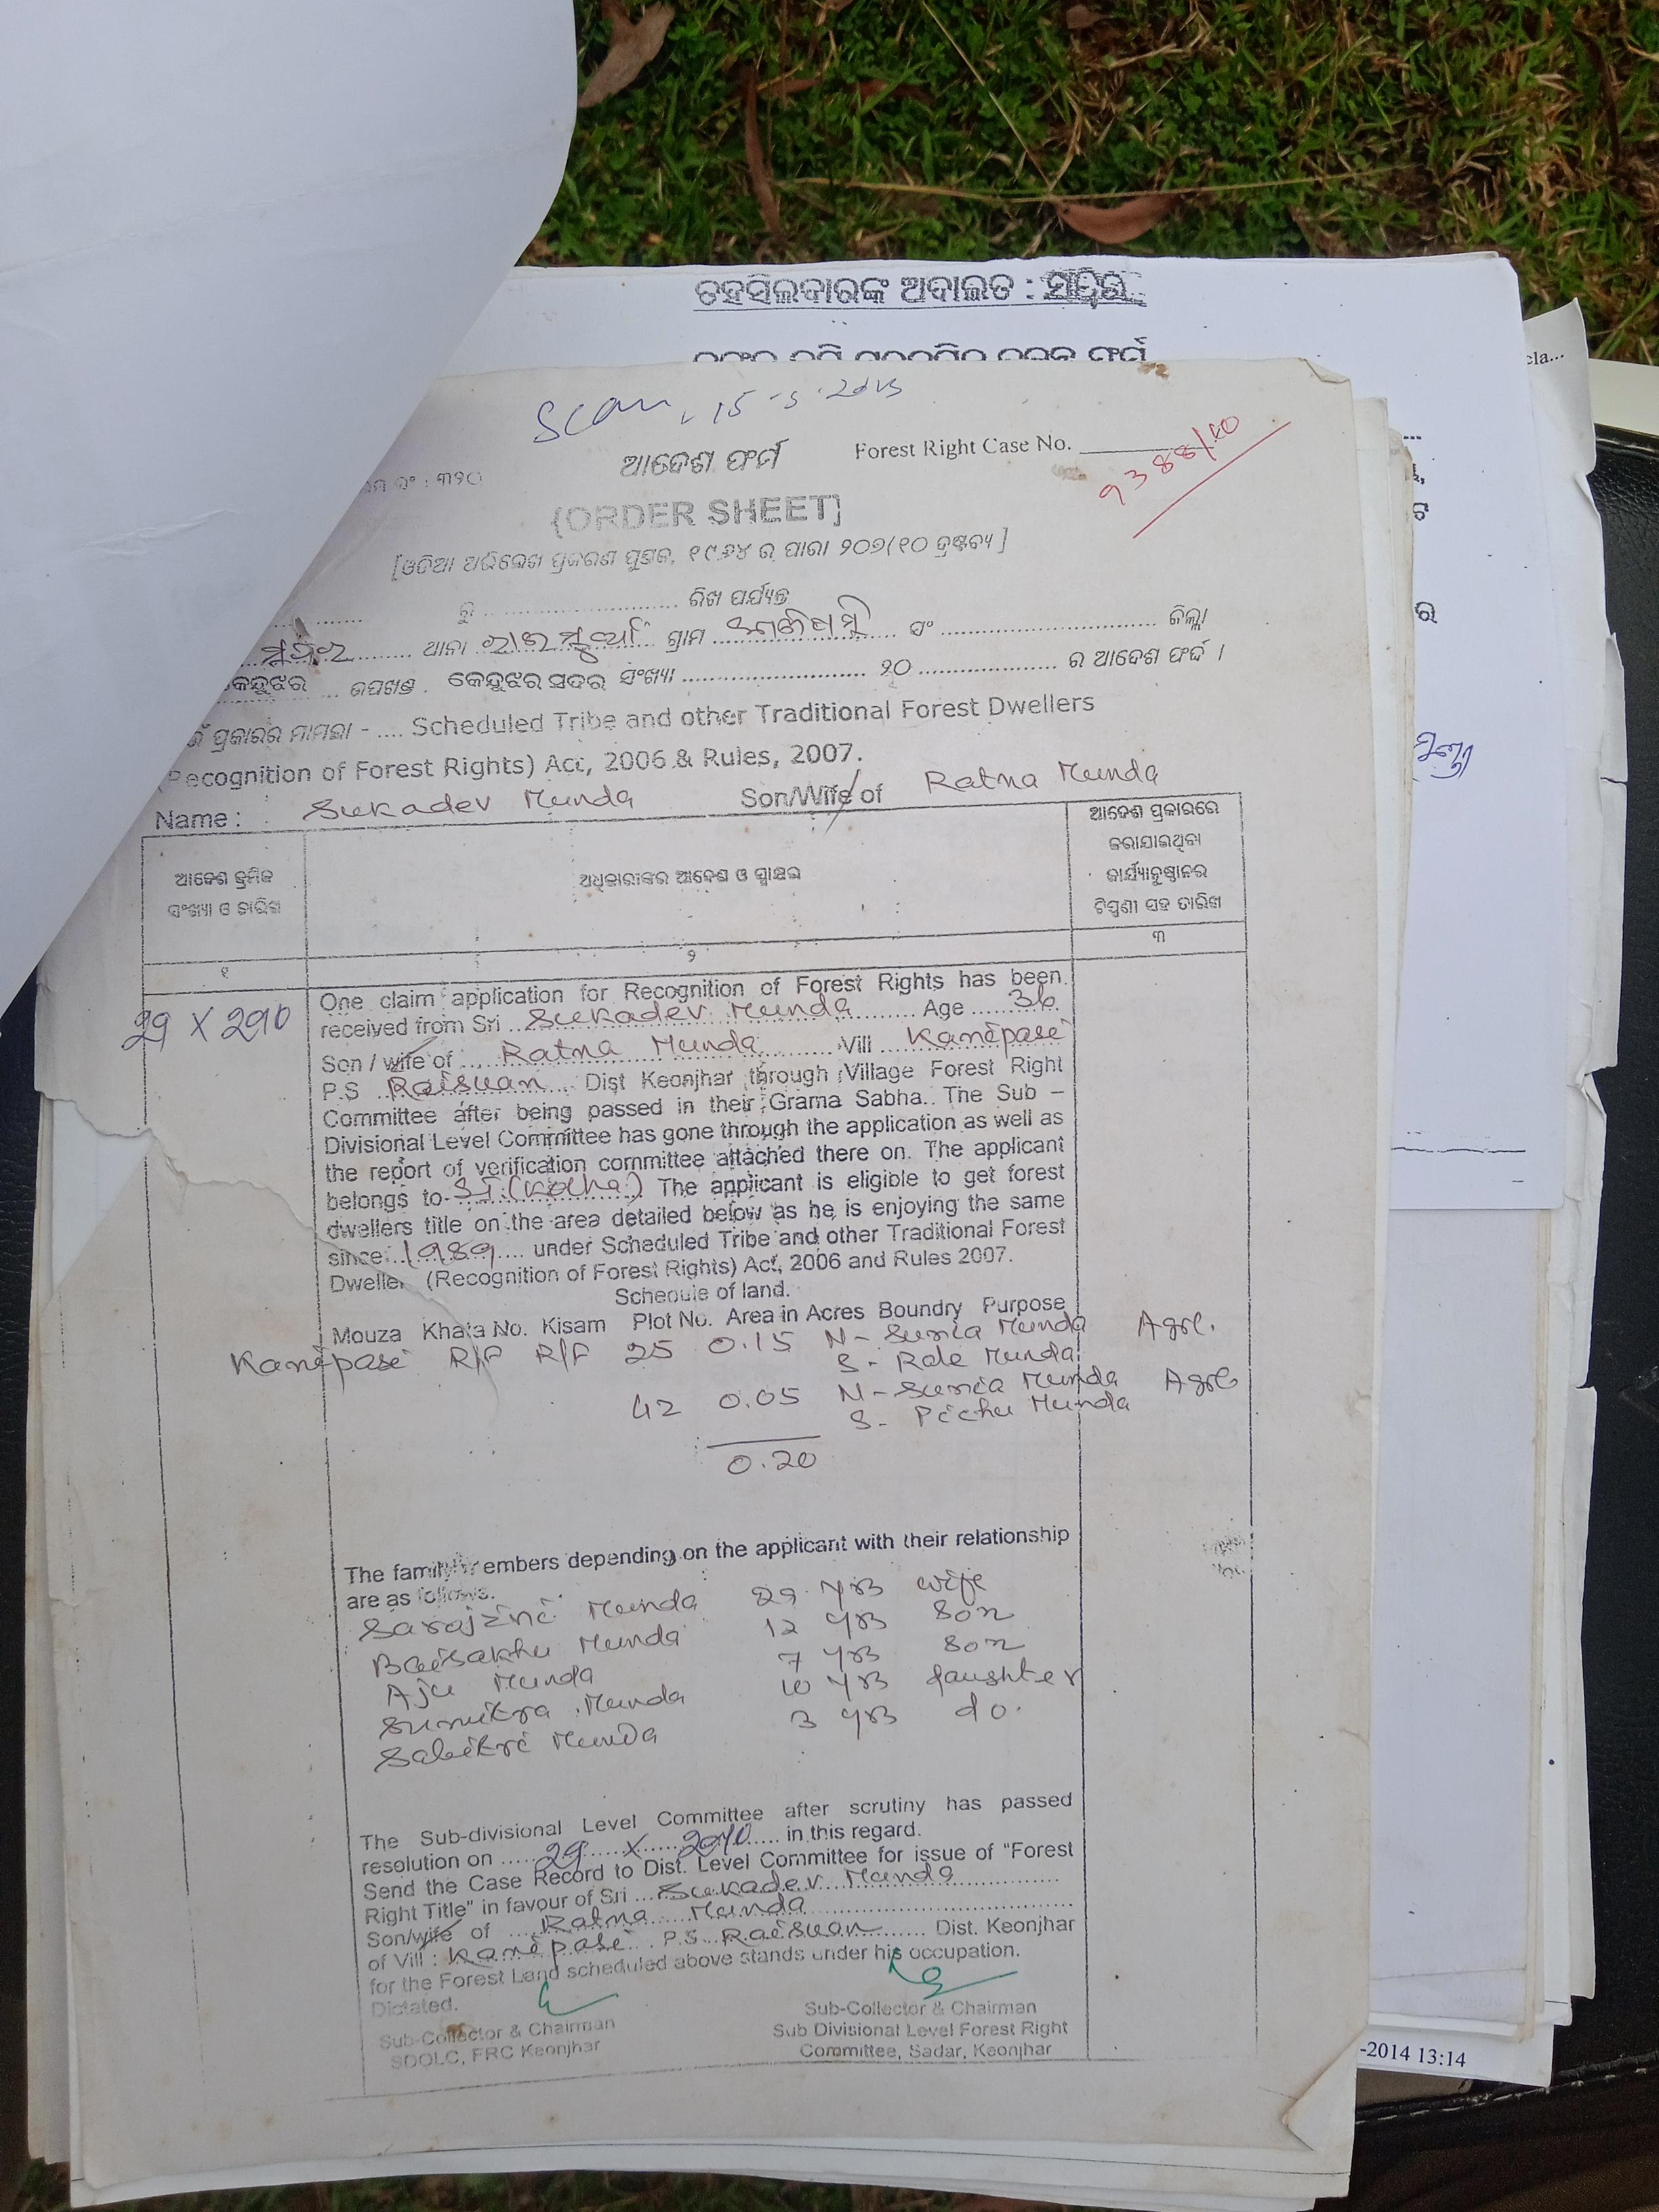 ତହସିଲଦାରଙ୍କ ଅଦାଲତ :
cla...
Scan, 15-5-2013
ଆଦେଶ ଫର୍ମ
Forest Right Case No.
9388/10
ନଂ : ୩୨୦
[ORDER SHEET]
[ଓଡିଆ ଅଭିଲେଖ ପ୍ରକରଣ ପୁସ୍ତକ, ୧୯୬୪ ର ପାରା ୨୦୭(୧୦ ଦ୍ରଷ୍ଟବ୍ୟ ]
ରୁ .............................. ରିଖ ପର୍ଯ୍ୟନ୍ତ
ଥାନା ରାଇସୁଆଁ ଗ୍ରାମ ........ ସଂ .............................. ଜିଲ୍ଲା
କେନ୍ଦୁଝର ... ଉପଖଣ୍ଡ . କେନ୍ଦୁଝର ସଦର ସଂଖ୍ୟା .............................. ୨୦ .................... ର ଆଦେଶ ଫର୍ଦ୍ଦ ।
ପ୍ରକାରର ମାମଲା - .... Scheduled Tribe and other Traditional Forest Dwellers
(Recognition of Forest Rights) Act, 2006 & Rules, 2007.
Name : Sukadev Munda Son/Wife of Ratna Munda
ଆଦେଶ କ୍ରମିକ
ସଂଖ୍ୟା ଓ ତାରିଖ
ଅଧିକାରୀଙ୍କର ଆଦେଶ ଓ ସ୍ୱାକ୍ଷର
ଆଦେଶ ପ୍ରକାରରେ
କରାଯାଇଥିବା
କାର୍ଯ୍ୟାନୁଷ୍ଠାନର
ଟିପ୍ପଣୀ ସହ ତାରିଖ
୧
୨
୩
29 X 2010
One claim application for Recognition of Forest Rights has been
received from Sri ... Sukadev Munda ......... Age ...... 36
Son / wife of .... Ratna Munda .......... Vill .. Kanipasi
P.S Raisuan ... Dist Keonjhar through Village Forest Right
Committee after being passed in their Grama Sabha. The Sub –
Divisional Level Committee has gone through the application as well as
the report of verification committee attached there on. The applicant
belongs to ST (Kolha) The applicant is eligible to get forest
dwellers title on the area detailed below as he is enjoying the same
since 1989 .... under Scheduled Tribe and other Traditional Forest
Dweller (Recognition of Forest Rights) Act, 2006 and Rules 2007.
Schedule of land.
Mouza Khata No. Kisam Plot No. Area in Acres Boundry Purpose
Kanipasi R/F R/F 25 0.15 N- Sunia Munda Agrl.
S- Role Munda
42 0.05 N- Sunia Munda Agrl
S- Pichu Munda
0.20
The family members depending on the applicant with their relationship
are as follows.
Sarajini Munda 29 yrs wife
Baisakhu Munda 12 yrs son
Aju Munda 7 yrs son
Sumitra Munda 10 yrs daughter
Sabitri Munda 3 yrs do.
The Sub-divisional Level Committee after scrutiny has passed
resolution on ..... 29 X 2010 .... in this regard.
Send the Case Record to Dist. Level Committee for issue of "Forest
Right Title" in favour of Sri ... Sukadev Munda
Son/wife of .... Ratna Munda
of Vill : Kanipasi P.S Raisuan ....... Dist. Keonjhar
for the Forest Land scheduled above stands under his occupation.
Dictated.
Sub-Collector & Chairman
SDOLC, FRC Keonjhar
Sub-Collector & Chairman
Sub Divisional Level Forest Right
Committee, Sadar, Keonjhar
-2014 13:14